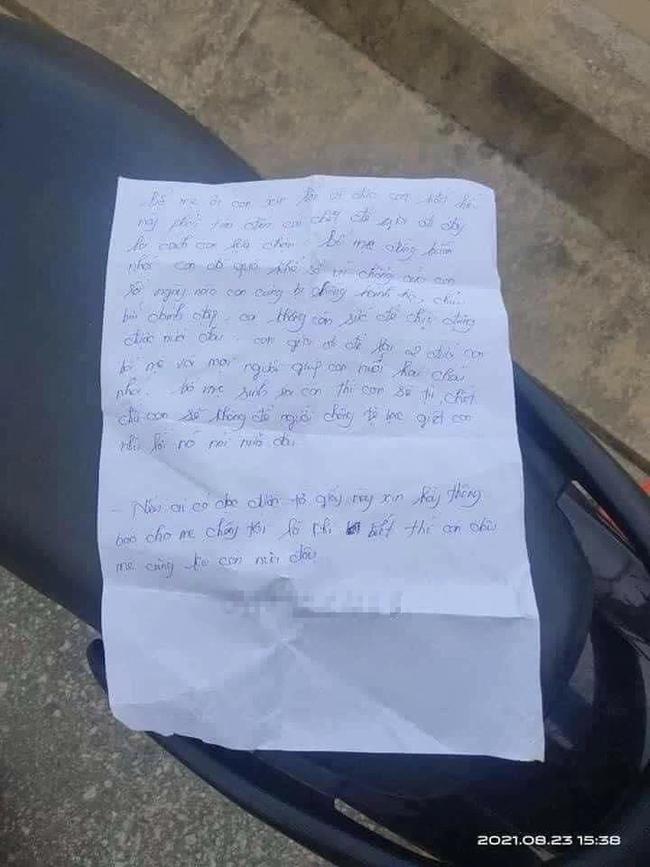 Bố mẹ ơi con xin lỗi vì đứa con bất hiếu
này phải tìm đến cái chết để giải
là cách con lựa chọn. Bố mẹ đừng buồn
nhé! con đã quá khổ sở vì chồng của con
rồi ngày nào con cũng bị chồng hành hạ, chửi
bới đánh đập. ca không còn sức để chịu đựng
được nữa đâu. con giờ để lại 2 đứa con
bố mẹ và mọi người giúp con nuôi hai cháu
nhé. bố mẹ sinh ra con thì con sẽ tự chết
chứ con sẽ không để người chồng tệ bạc giết con
như lời nó nói nữa đâu
- Nếu ai có đọc được tờ giấy này xin hãy thông
báo cho mẹ chồng tôi là khi biết thì con dâu
mẹ cũng ko còn nữa đâu
2021.08.23 15:38